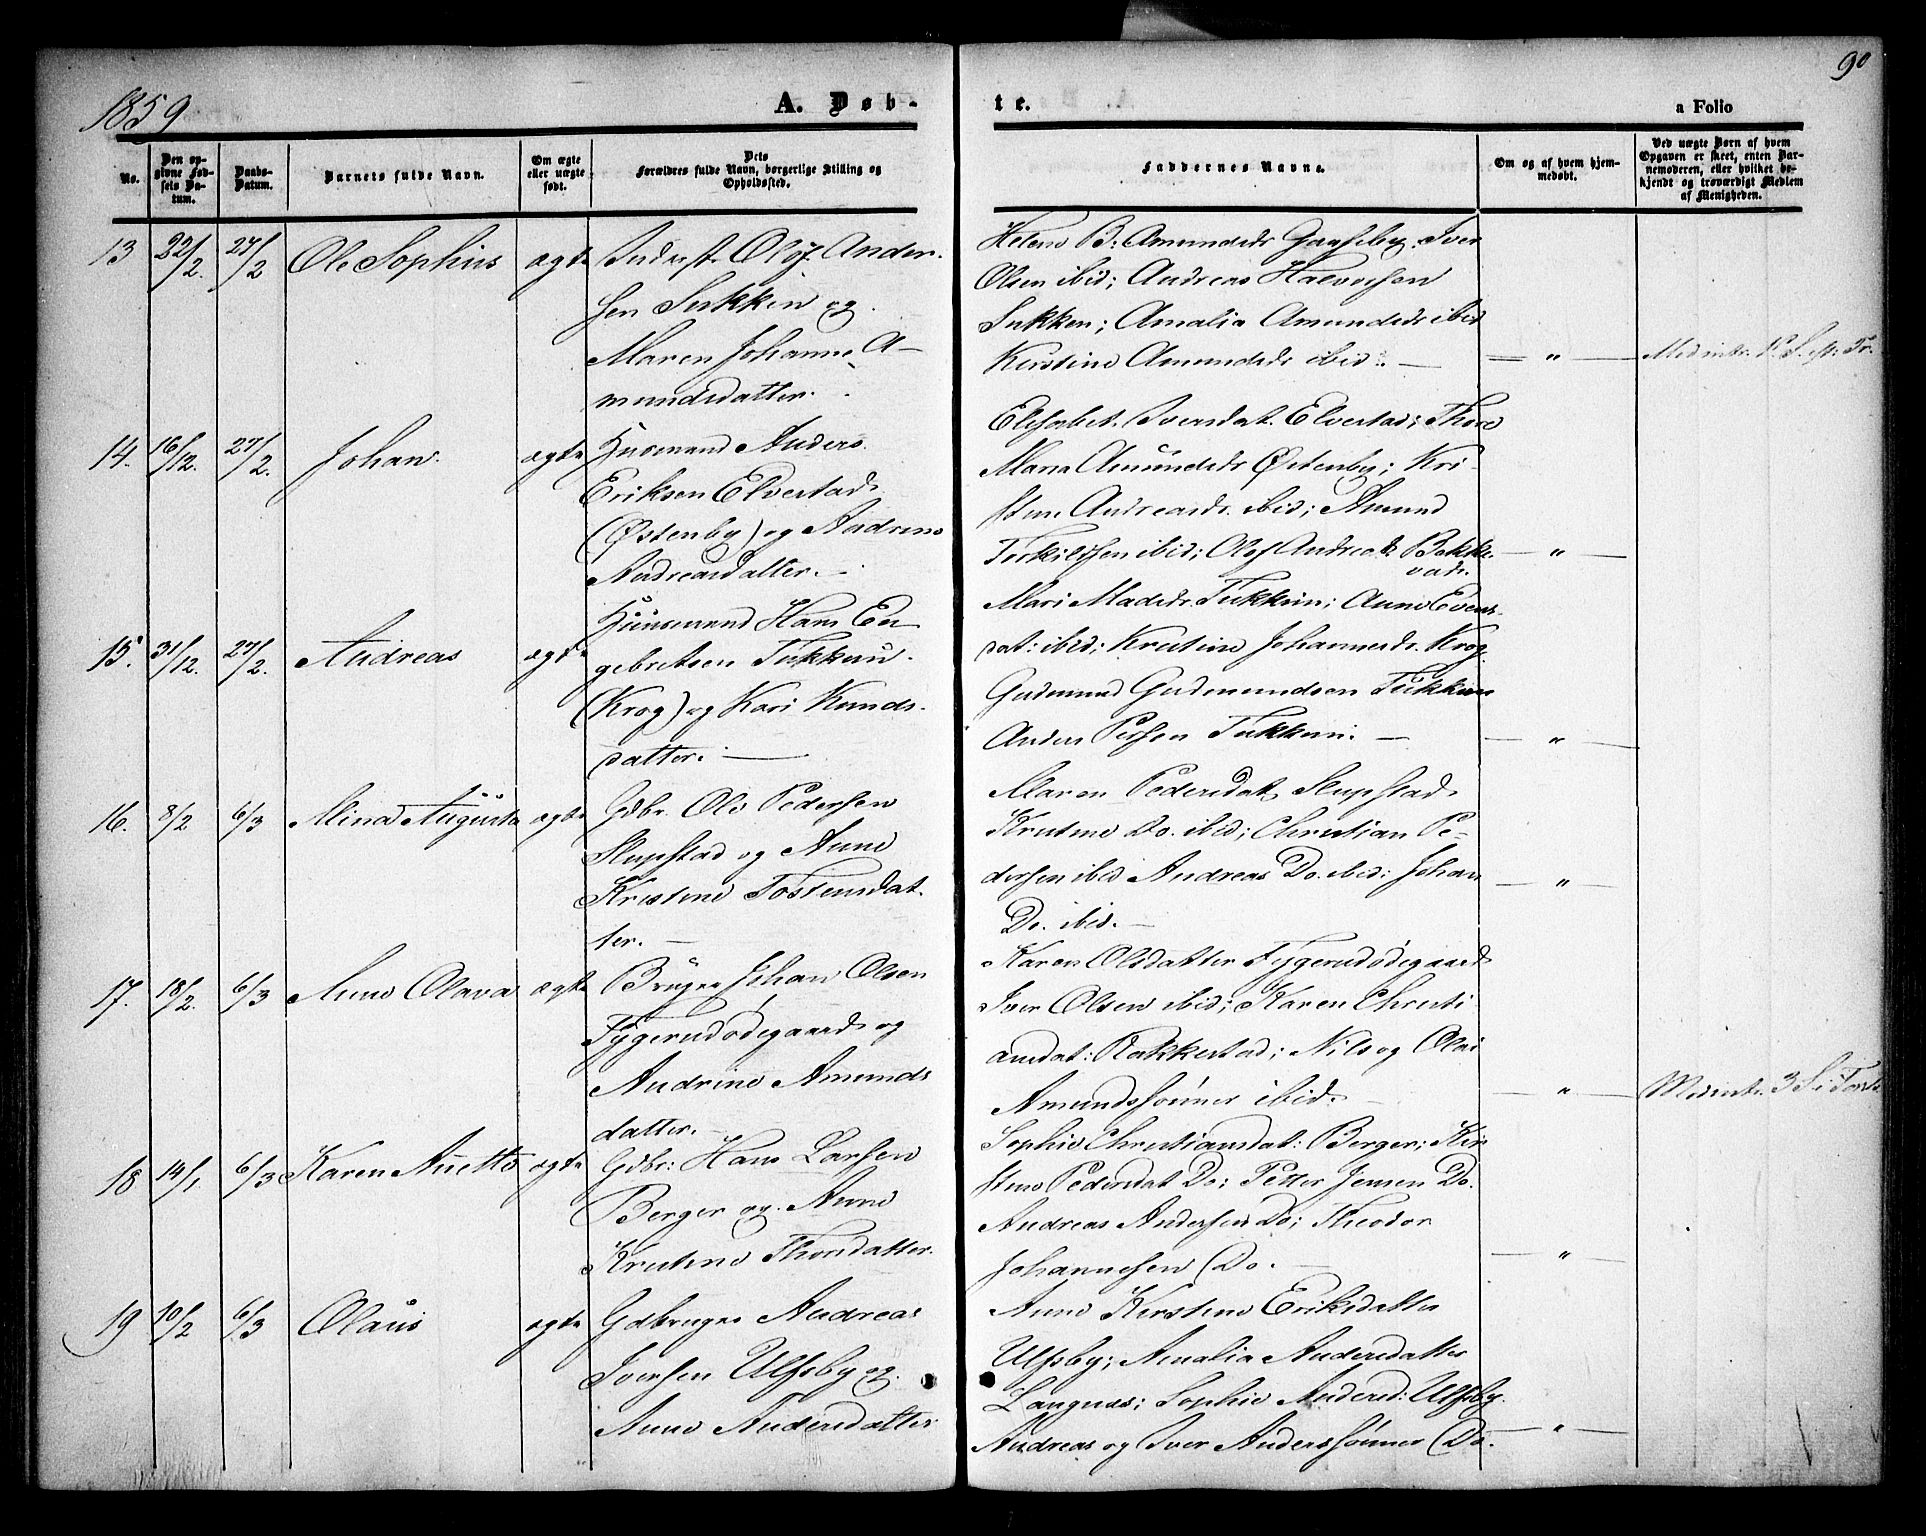 1859
A. Døb-
te.
a Folio
90
No.
Den op-
givne Fød-
sels Da-
tum.
Daabs-
Datum.
Barnets fulde Navn.
Om ægte
eller uægte
født.
Dets
Forældres fulde Navn, borgerlige Stilling og
Opholdssted.
Faddernes Navne.
Om og af hvem hjem-
medøbt.
Ved uægte Børn af hvem
Opgaven er skeet, enten Bar-
nemoderen, eller hvilket be-
kjendt og troværdigt Medlem
af Menigheden.
13 22/2. 27/2 Ole Sophus ægte Inderst Oluf Ander-
sen Sukken og
Maren Johanne A-
mundsdatter.
Helene B: Amundsdr Gaaseby. Iver
Olsen ibid; Andreas Halvorsen
Sukken; Amalia Amundsdr ibid
Kirstine Amundsdr ibid. — "
14. 16/12. 27/2. Johan. ægte Huusmand Anders
Eriksen Elvestad
(Østenby) og Andrine
Andreasdatter. —
Elisabet Iversdat. Elvestad; Thore
Maria Amundsdr Østenby; Kri-
stine Andreasdr. ibid; Amund
Torkildsen ibid; Olof Andreasdr. Bakke-
vad. — " —
15. 31/12. 27/2. Andreas ægte Huusmand Hans En-
gebretsen Tukkun
(Krog) og Kari Knuds-
datter. —
Mari Madsdr. Tukkun; Anne Evens-
dat: ibid; Kristine Johannesdr. Krog
Gudmund Gudmundsen Tukkun
Anders Persen Tukkun. — " —
16. 8/2 6/3 Mina Augusta ægte Gdbr. Ole Pedersen
Slupstad og Anne
Kristine Tostensdat-
ter. —
Maren Pedersdat. Slupstad
Kristine Do. ibid; Christian Pe-
dersen ibid Andreas Do. ibid; Johan
Do. ibid. — " —
17. 18/2. 6/3 Anne Olava ægte Bruger Johan Olsen
Fygerudødegaard og
Andrine Amunds
datter. —
Karen Olsdatter Fygerudødegaard
Iver Olsen ibid; Karen Christi-
ansdat: Rakkestad; Nils og Olai
Amundssønner ibid. — " —
18 14/1. 6/3 Karen Anette ægte Gdbr: Hans Larsen
Berger og Anne
Kristine Thorsdatter.
Sophie Christiansdat: Berger; Kir-
stine Pedersdat Do; Petter Jensen Do.
Andreas Andersen Do; Theodor
Johannesen Do. — " —
19 10/2 6/3 Olaus ægte Gdbruger Andreas
Iversen Ulfsby og
Anne Andersdatter
Anne Kirstine Eriksdatter
Ulfsby; Amalia Andersdatter
Langnæs; Sophie Andersd: Ulfsby.
Andreas og Iver Anderssønner Do. — " —